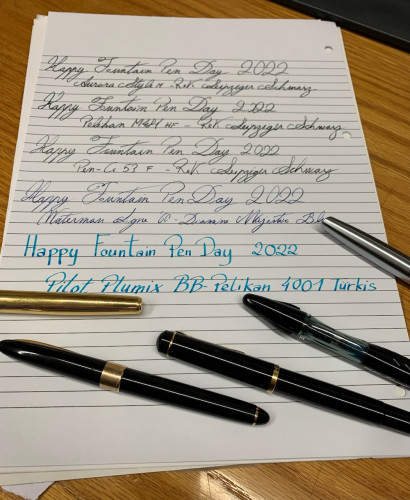 Happy Fountain Pen Day 2022
Aurora Style M - R&K Leipziger Schwarz
Happy Fountain Pen Day 2022
Pelikan HF - R&K Leipziger Schwarz
Happy Fountain Pen Day 2022
Pen-Co 53 F - R&K Leipziger Schwarz
Happy Fountain Pen Day 2022
Waterman - Diamine Majestic Blue
Happy Fountain Pen Day 2022
Pilot Plumix BB-Pelikan 4001 Türkis